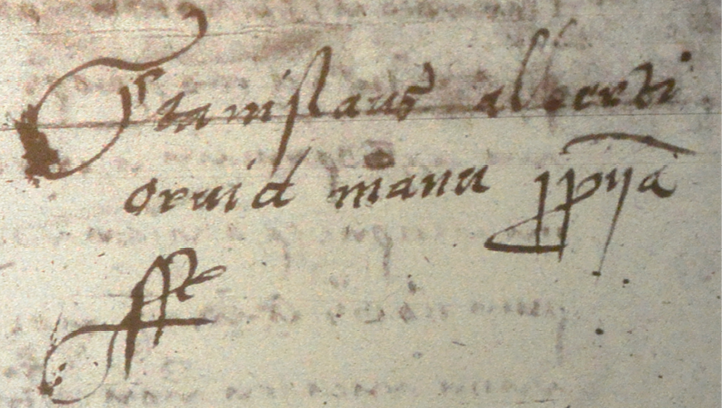 Stanislaus alberti
oruid manu ppiia
sst